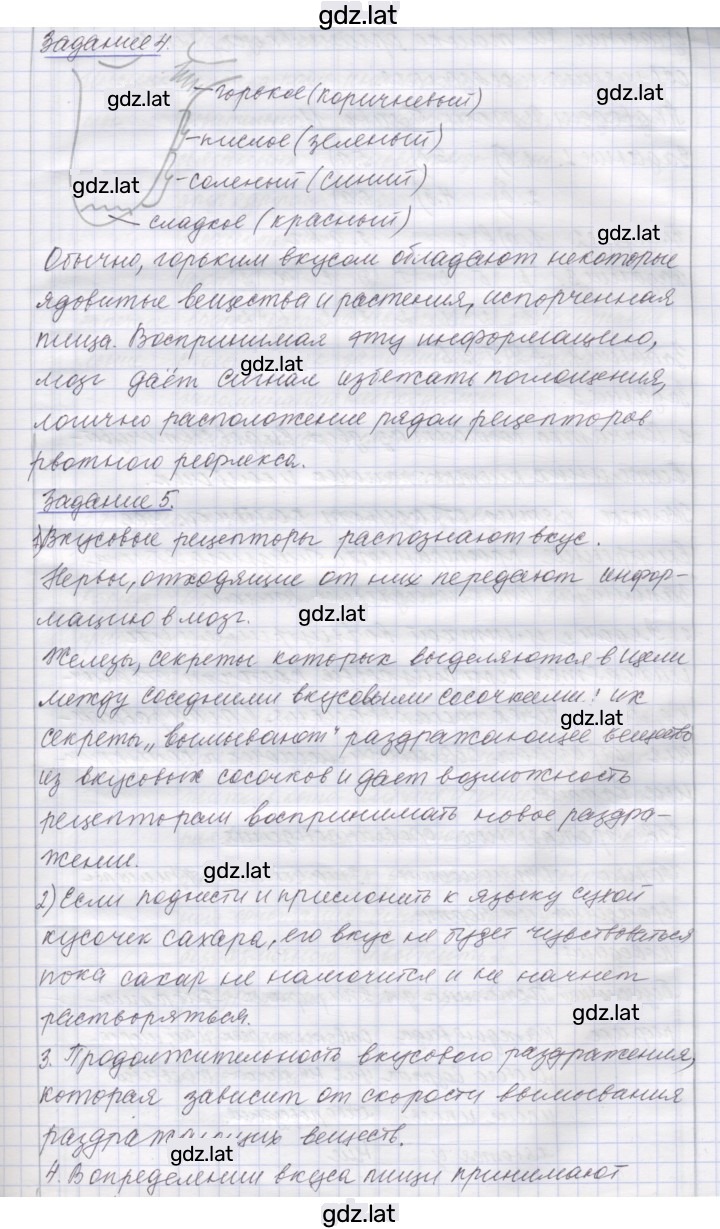 gdz.lat
Задание 4.
gdz.lat
горькое (коричневый)
gdz.lat
кислое (зеленый)
gdz.lat
соленый (синий)
сладкое (красный)
gdz.lat
Обычно, горьким вкусом обладают некоторые
ядовитые вещества и растения, испорченная
пища. Воспринимая эту информацию,
gdz.lat
мозг даёт сигнал избежать поглощения,
логично расположение рядом рецепторов
рвотного рефлекса.
Задание 5.
1) Вкусовые рецепторы распознают вкус.
Нервы, отходящие от них передают инфор-
мацию в мозг.
gdz.lat
Железы, секреты которых выделяются в щели
между соседними вкусовыми сосочками: их
gdz.lat
секреты „вымывают" раздражающее вещество
из вкусовых сосочков и дает возможность
рецепторам воспринимать новое раздра-
жение.
gdz.lat
2) Если поднести и прислонить к языку сухой
кусочек сахара, его вкус не будет чувствоваться
пока сахар не намочится и не начнет
растворяться.
gdz.lat
3. Продолжительность вкусового раздражения,
которая зависит от скорости вымывания
раздражающих веществ.
gdz.lat
4. В определении вкуса пищи принимают
gdz.lat